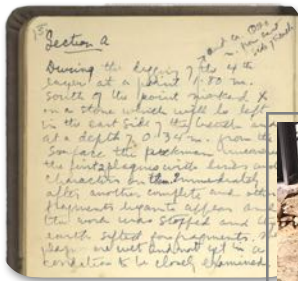 15
Section A
and ca. 1.50
m. from east
side of trench
During the digging of the 4th
layer at a point 1.80 m.
south of the point marked X
on a stone which will be left
in the east side of the trench and
at a depth of 0.34 m. from the
surface the pickman uncovered
the first plaque with birds and
characters on them. Immediately
after another complete and other
fragments began to appear and
the work was stopped and the
earth sifted for fragments. The
plaques are wet and not yet in a
condition to be closely examined.